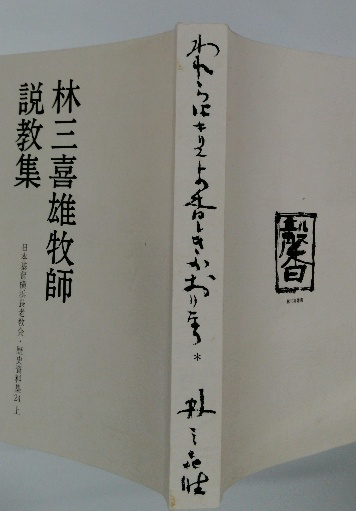 林三喜雄牧師
説教集
日本基督横浜長老教会・歴史資料集24 上
われらはキリストの香しきかおりなり *
林三喜雄
馨